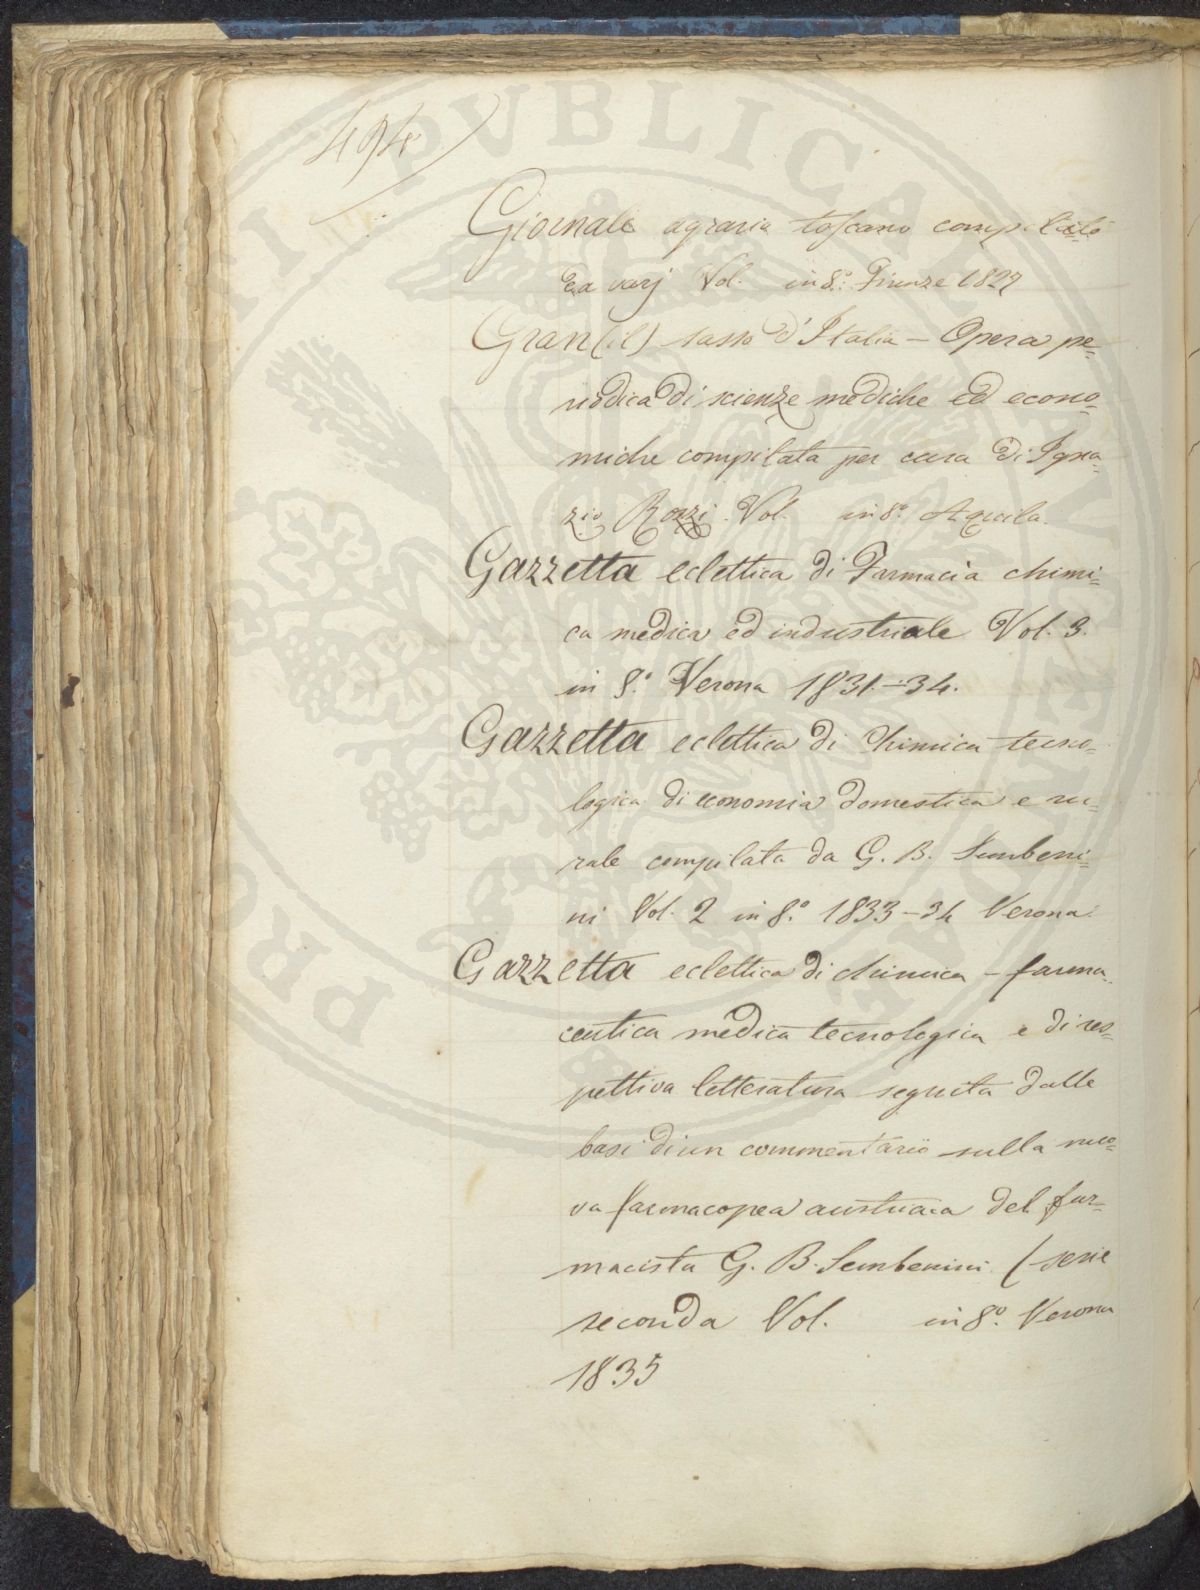 494
Giornale agrario toscano compilato
da varj Vol. in 8.° Firenze 1827
Gran (il) sasso d'Italia – Opera pe=
riodica di scienze mediche ed econo=
miche compilata per cura di Igna=
zio Rozzi Vol. in 8.° Aquila.
Gazzetta eclettica di Farmacia chimi=
ca medica ed industriale Vol. 3.
in 8.° Verona 1831.–34.
Gazzetta eclettica di Chimica tecno=
logica di economia domestica e ru=
rale compilata da G. B. Sembeni=
ni Vol. 2 in 8.° 1833–34 Verona.
Gazzetta eclettica di chimica – farma=
ceutica medica tecnologica e di res=
pettiva letteratura seguita dalle
basi di un commentario sulla nuo=
va farmacopea austriaca del far=
macista G. B. Sembenini (serie
seconda Vol. in 8.° Verona
1835